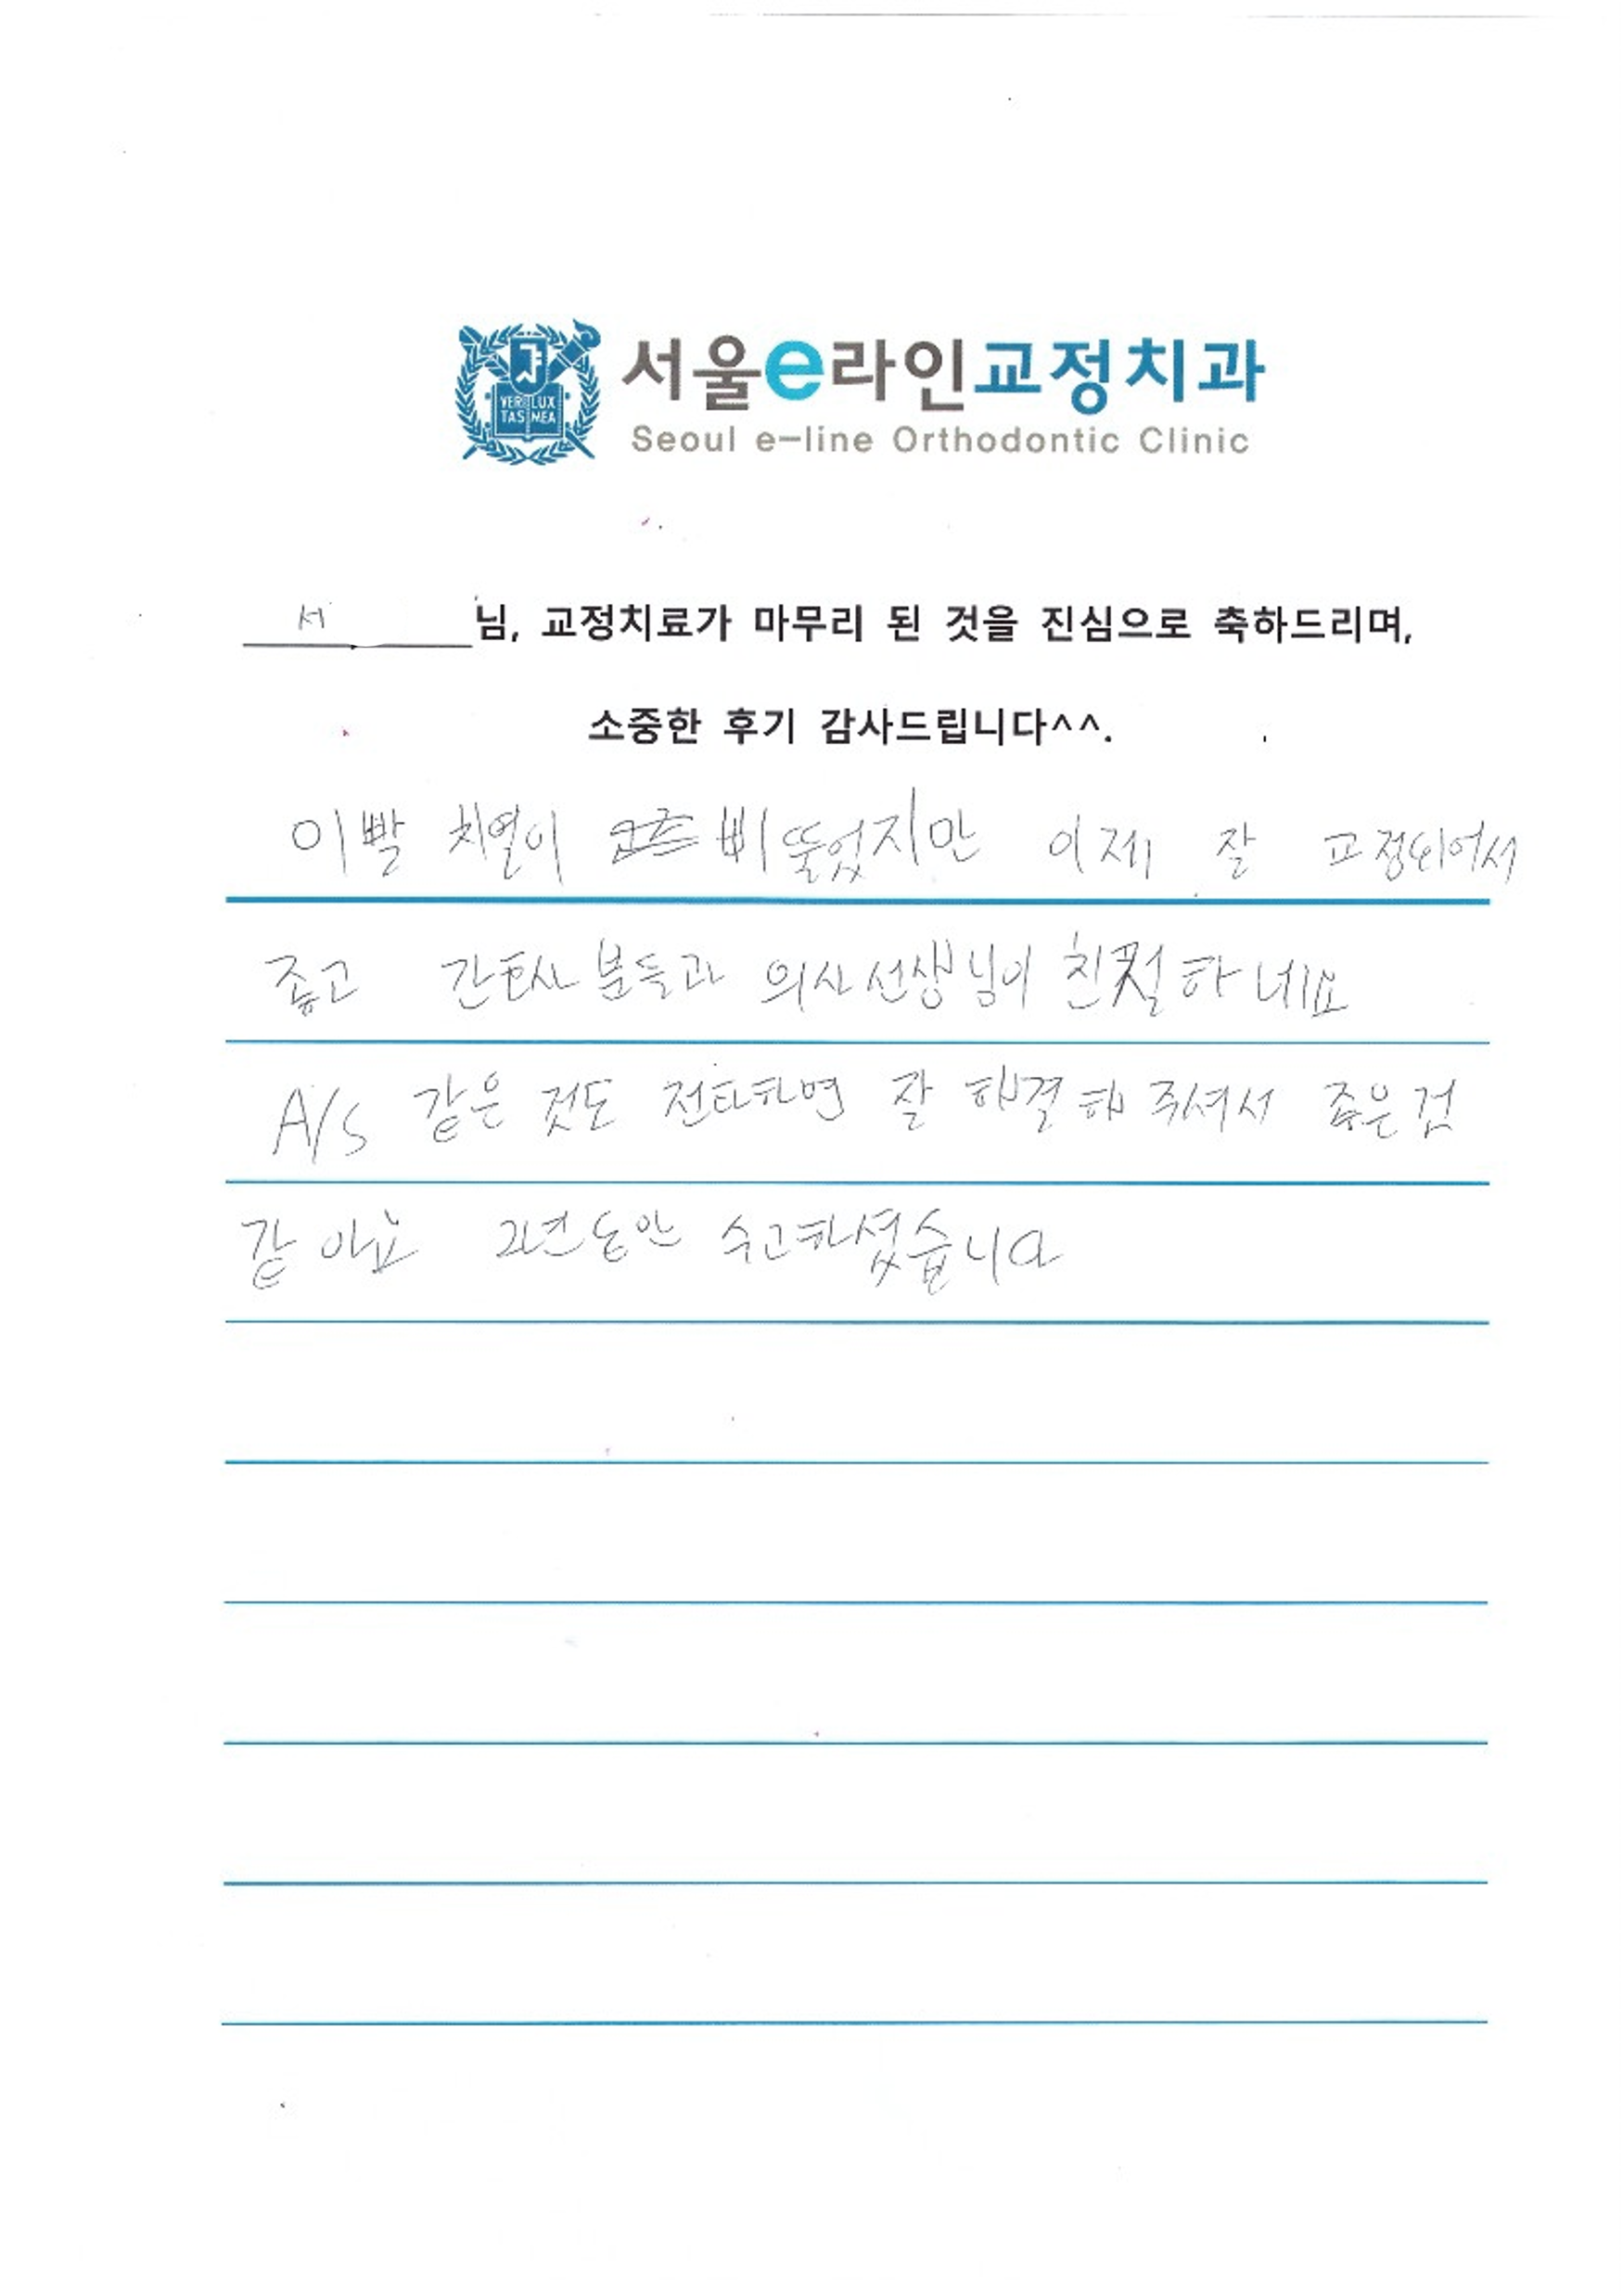 VERI LUX
TAS MEA
서울e라인교정치과
Seoul e-line Orthodontic Clinic
서 님, 교정치료가 마무리 된 것을 진심으로 축하드리며,
소중한 후기 감사드립니다^^.
이빨 치열이 삐뚤었지만 이제 잘 교정되어서
좋고 간호사분들과 의사선생님이 친절하네요
A/S 같은 것도 전화하면 잘 해결해 주셔서 좋은것
같아요 2년동안 수고하셨습니다